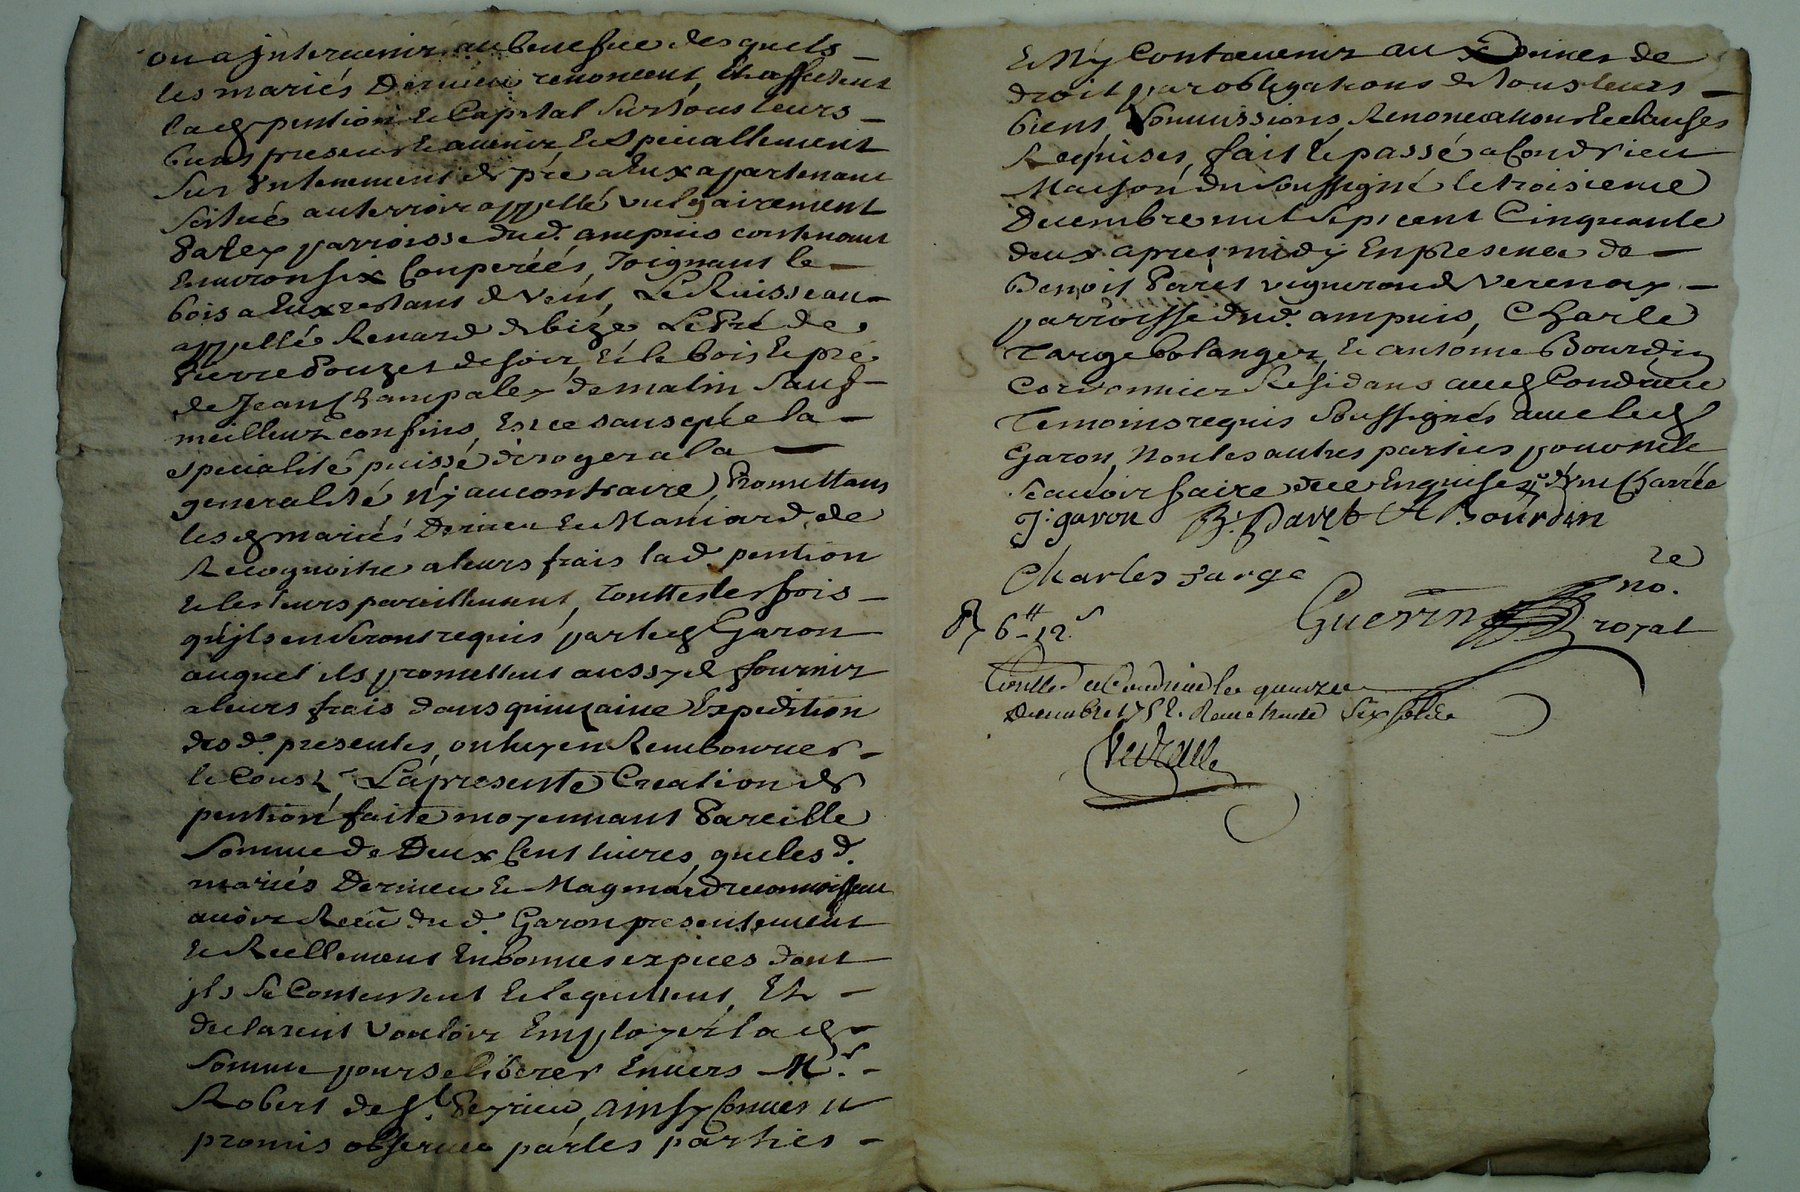 ou a jntervenir au benefice des quels
les mariés Derieu renoncent, et affectent
lad pention et Capital sur tous leurs
biens presents et avenir et specialement
sur un tenement de pré a Eux appartenant
scitué au terroir appellé vulgairement
parroisse dud. ampuis contenant
Environ six Couperéés, Joignant le
bois a Eux restant de vent, Le Ruisseau
appellé Renard de bize Le Pré de
Pierre Pouzet de soir, Et le bois Et pré
de Jean Champaley de matin sauf
meilleurs confins, Et ce sans que la
specialité puisse déroger a la
generalité ny au contraire, Promettans
les d mariés Derieu et Maniard, de
Recognoitre a leurs frais lad pention
et les leurs pareillement, Touttes les fois
qu'jls en seront requis par led Garon
auquel ils promettent aussy de fournir
a leurs frais dans quinzaine Expedition
des d. presentes, ou luy en Rembourcer
le Coust, La presente Creation de
pention faite moyennant Pareille
somme de Deux Cent livres, que les d.
mariés Derieu et Magniard reconnoissent
avoir Receu du d. Garon presentement
et Reellement En bonnes espices dont
jls se Contentent et le quittent, Et
declarent vouloir Employer lad
somme pour se liberer Envers Mr.
Robert de St. Peyrieu, ainsy Convenu et
promis observer par les parties
Et N'y Contrevenir aux peines de
droit par obligations de tous leurs
biens, soumissions, Renonciations et clauses
Requises, fait et passé a Condrieu
Maison du soussigné le troisieme
Decembre mil sept cent Cinquante
deux apres midy En presence de
Benoit Paret vigneron de Verenay
parroisse dud. ampuis, Charle
Targe bolanger, et antoine Bourdin
Cordonnier Residans aud Condrieu
Temoins requis soussignés avec led
Garon, Non les autres parties pour ne le
sçavoir faire de ce Enquises
J. garon B. Paret A Bourdin
Charles Targe
6 tt 12 s
Guerin no. re royal
Conttollé a Condrieu le quinze
Decembre 1752. Receu trente six sols